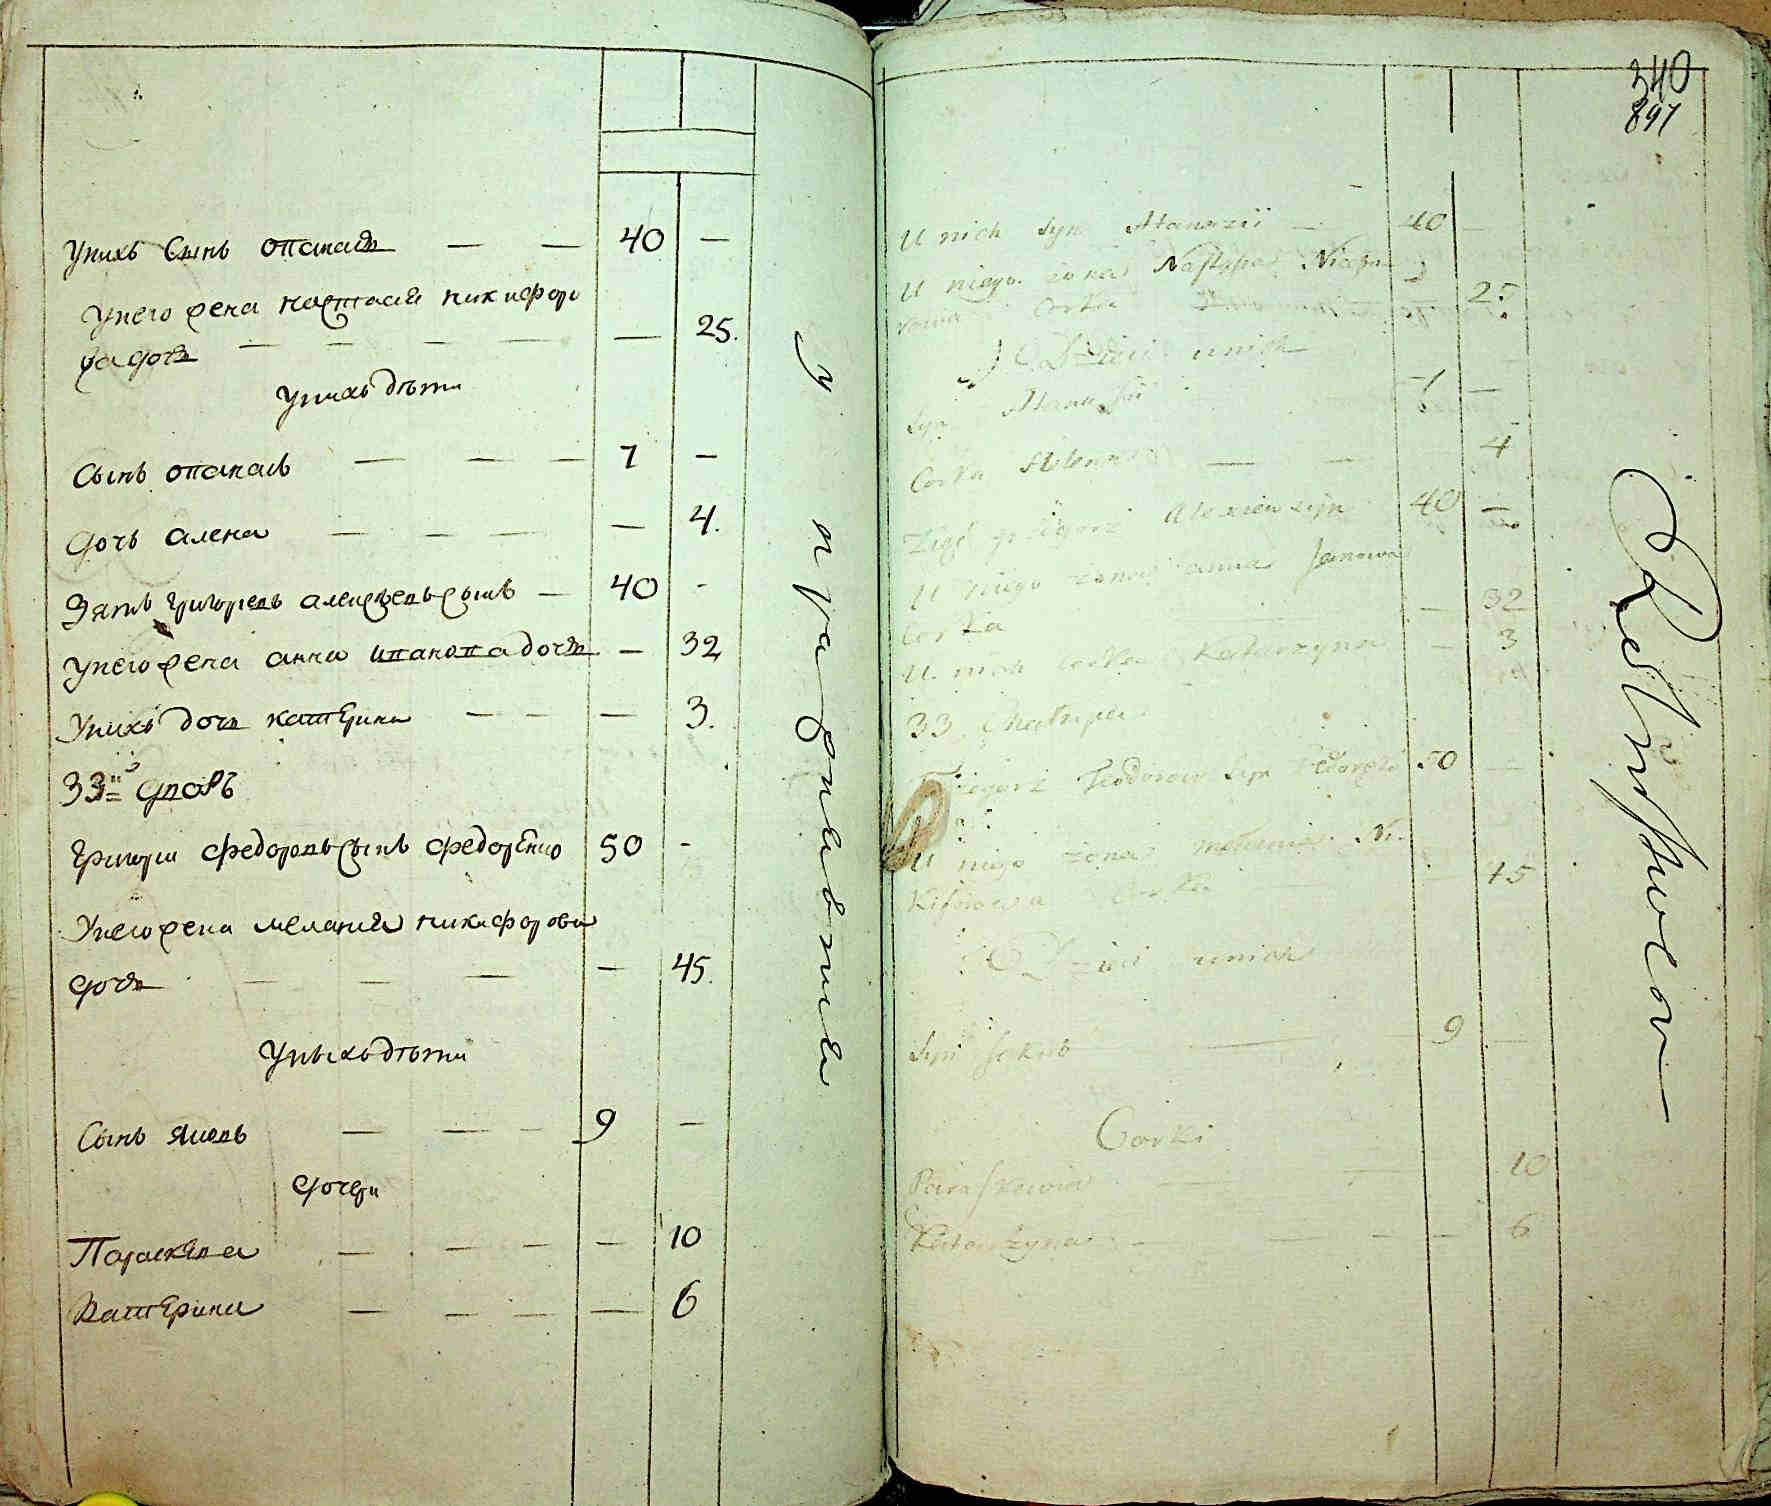 Унихъ Сынъ опанасъ — — 40 —
Унего жена настасия никифоро
ва дочь — — — — — 25.
Унихъ дѣти
Сынъ опанасъ — — — 7 —
дочь алена — — — — 4.
Зять григорей алексѣевъ сынъ — 40 -
Унего жена анна иванова дочь — 32
Унихъ дочь катерина — — — 3.
33й дворъ
Григорей федоровъ сынъ федоренко 50 -
Унего жена мелания никифорова
дочь — — — — 45.
Унихъ дѣти
Сынъ яковъ — — — 9 —
дочери
Параскева — — — — 10
Катерина — — — — 6
упразднения
340
897
U nich Syn Atanazii — 40
U niego żona Nastazya Nikifo
rowa Corka 25
Dzieci u nich
Syn Atanazii 7 —
Corka Helena — — 4
Zięć Grzegorz Alexiew syn 40 —
U niego żona Anna Janowa
Corka — 32
U nich Corka Katarzyna — 3
33 Chałupa
Grzegorz Teodorow Syn Fedorenko 50 —
U niego żona Melania Ni
kiforowa Corka 45
Dzieci u nich
Syn Jakub — 9 —
Corki
Paraskewia — — 10
Katarzyna — — — — 6